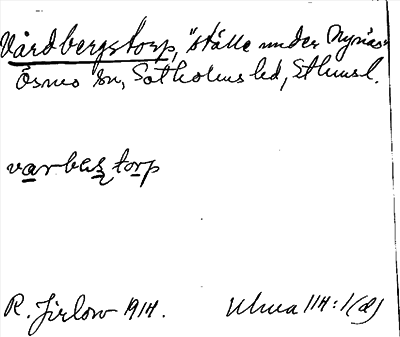 Vårdbergstorp, "ställe under Nynäs"
Ösmo sn, Sotholms hd, Sthmsl.
varbæstorp
R. Jirlow 1914. Ulma 114:1(d)